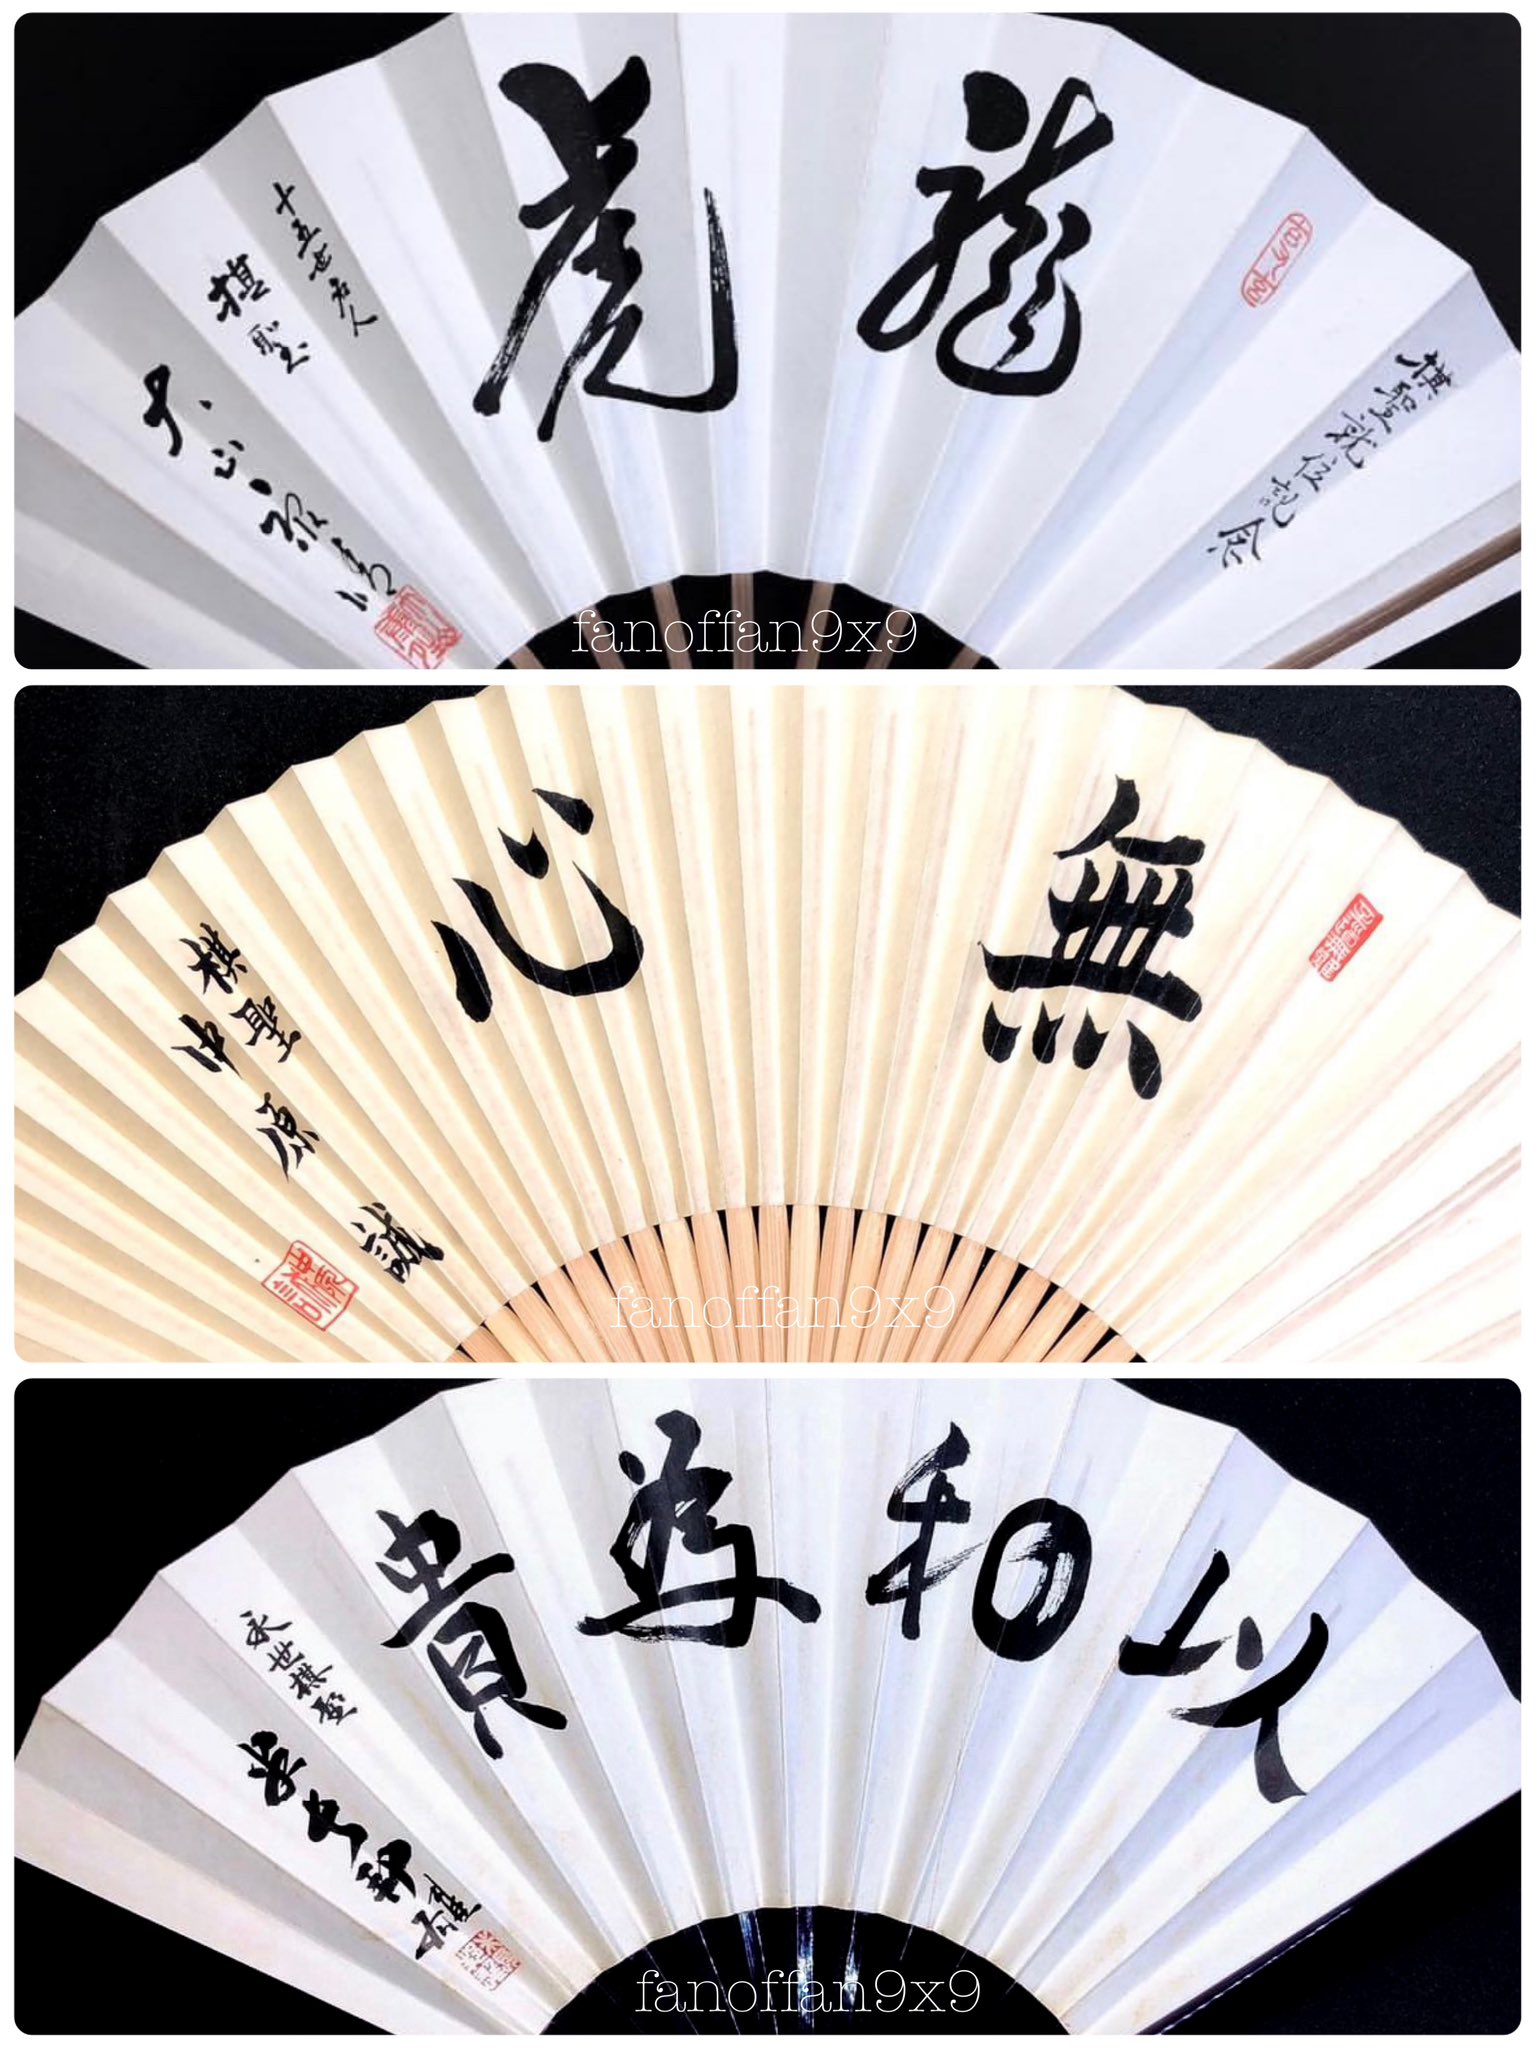 龍虎
棋聖就位記念
十五世名人
棋聖
大山康晴
fanoffan9x9
無心
棋聖
中原誠
fanoffan9x9
以和為貴
永世棋聖
米長邦雄
fanoffan9x9